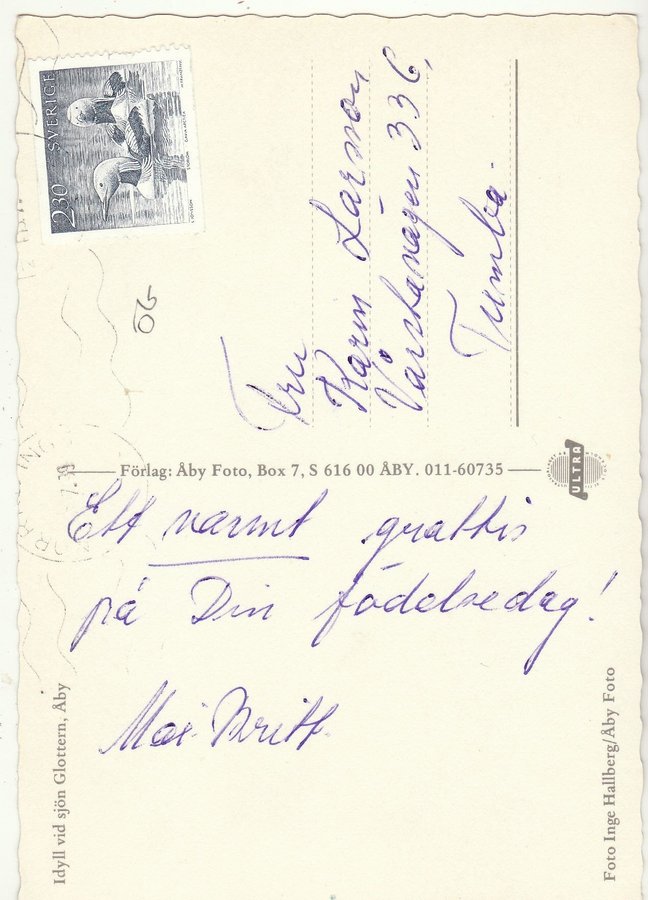 SVERIGE
2.30
OG
Fru
Karin Larsson
Vårstavägen 33 C,
Tumba.
Förlag: Åby Foto, Box 7, S 616 00 ÅBY. 011-60735
ULTRA
Ett varmt grattis
på Din födelsedag!
Mai-Britt
Idyll vid sjön Glottern, Åby
Foto Inge Hallberg/Åby Foto